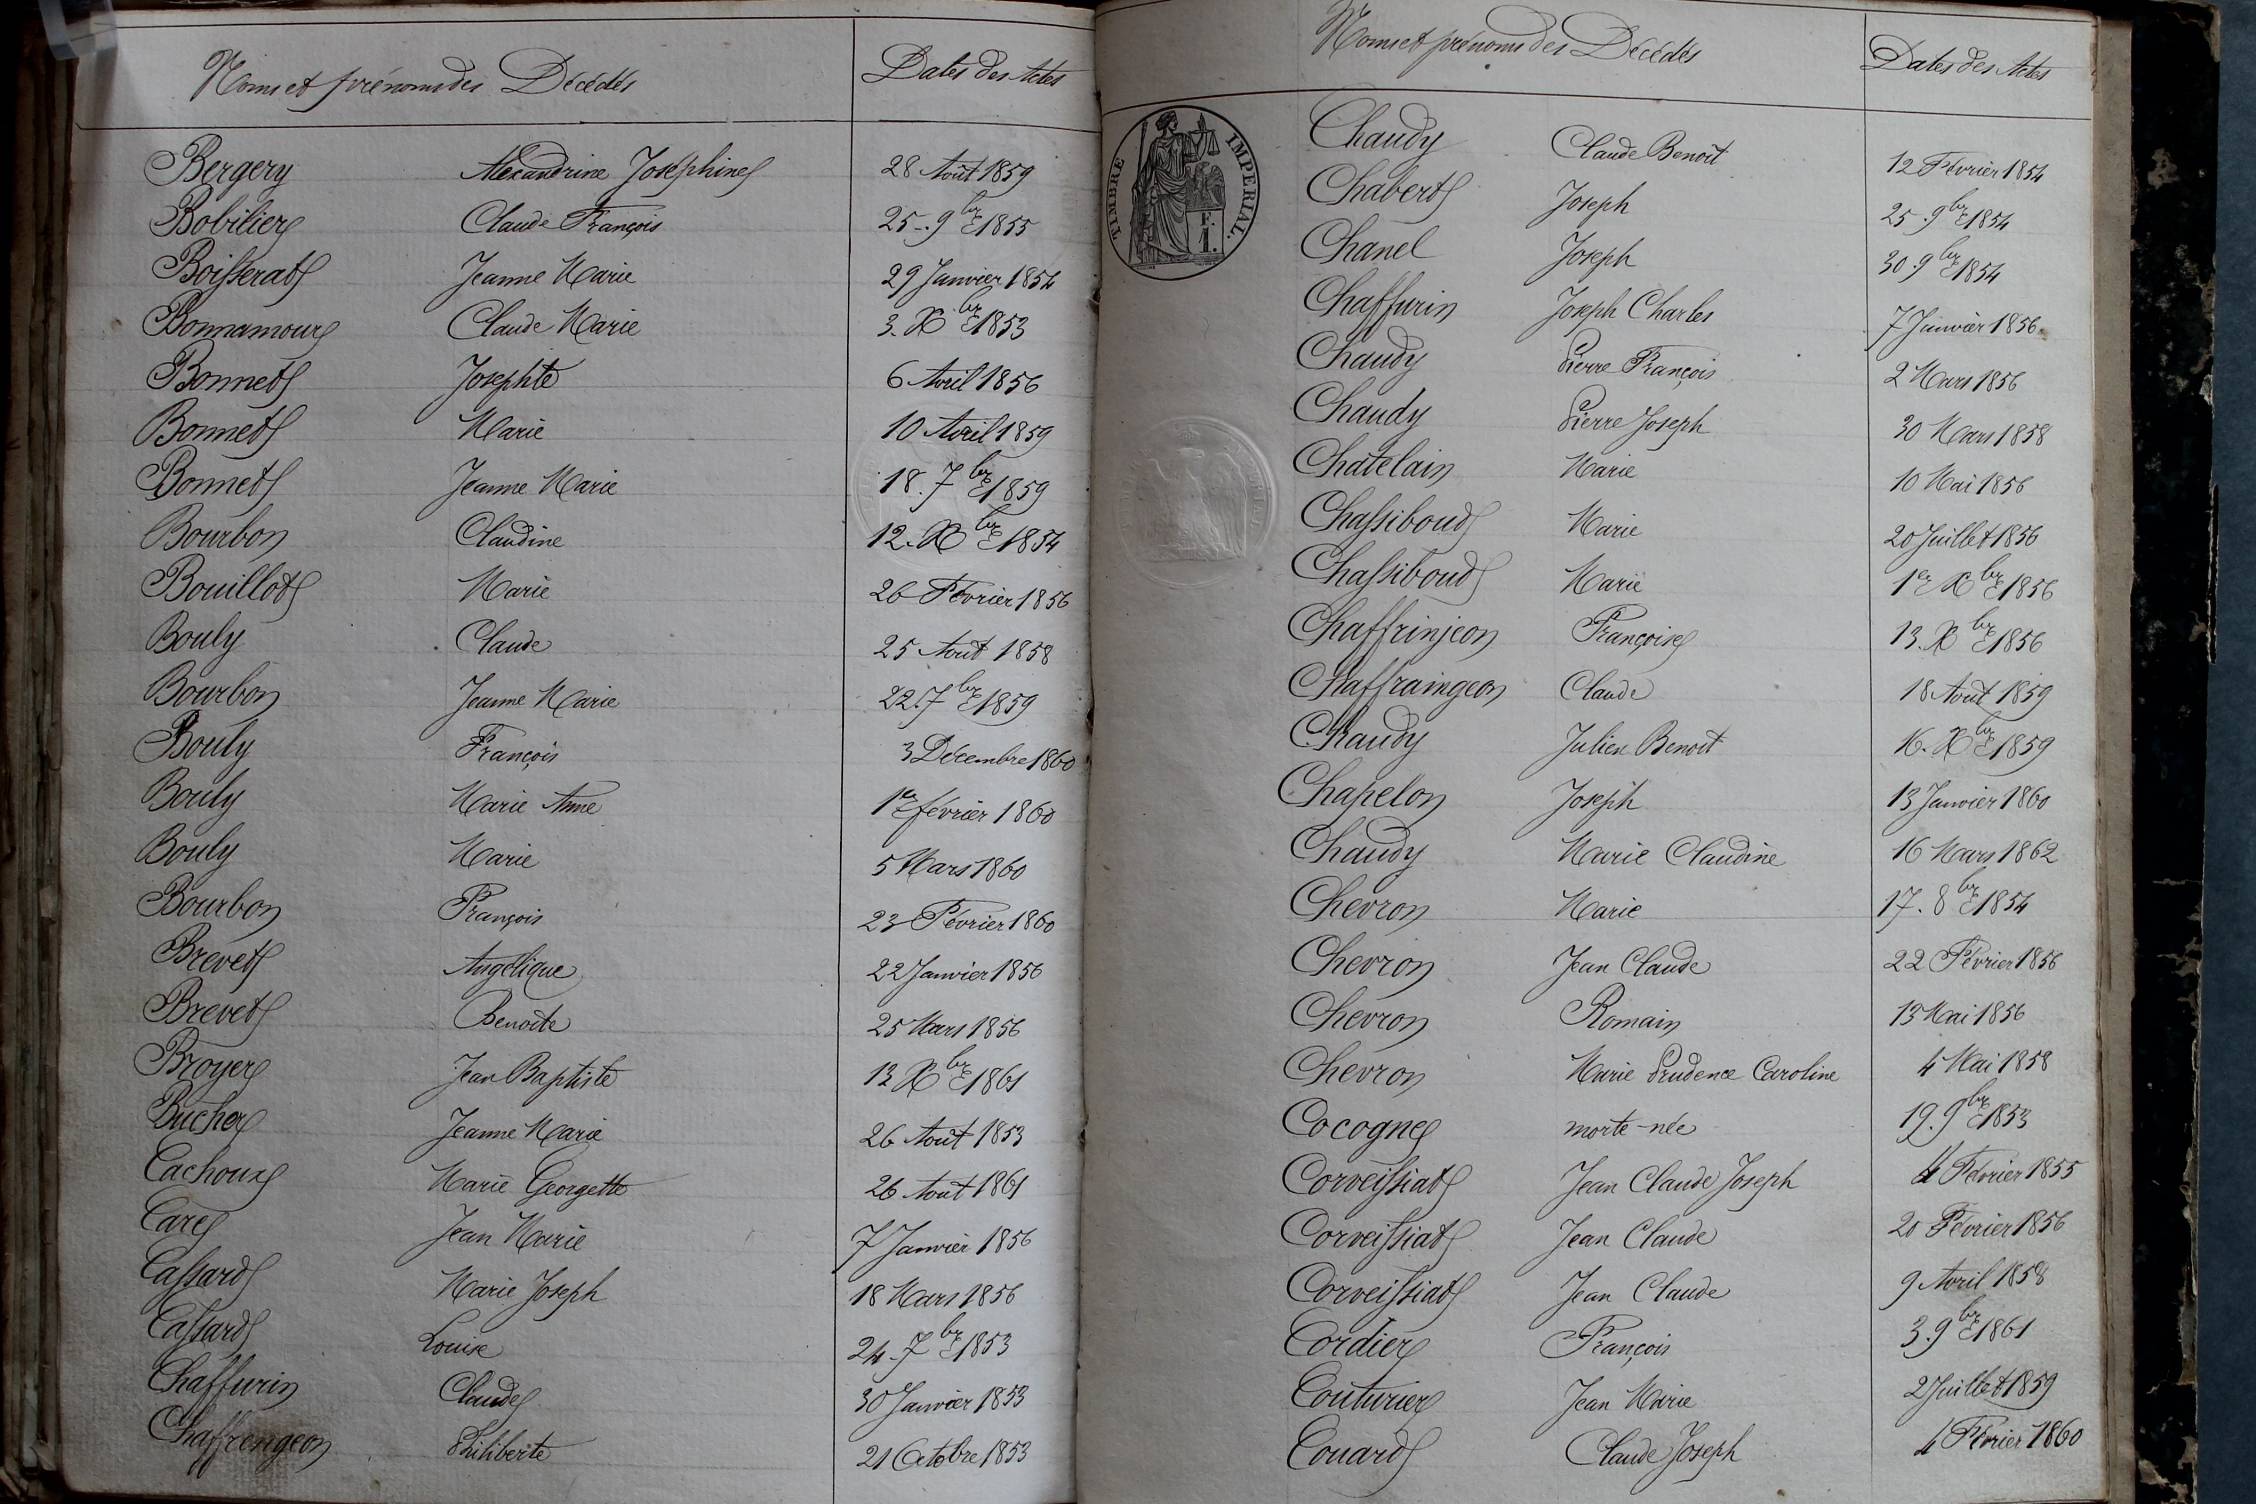 Noms et prénoms des Décédés Dates des Actes
Bergery Alexandrine Joséphine 28 Août 1859
Bobilier Claude François 25. 9bre 1855
Boisserat Jeanne Marie 29 Janvier 1854
Bonnamour Claude Marie 3. Xbre 1853
Bonnet Josephte 6 Avril 1856
Bonnet Marie 10 Avril 1859
Bonnet Jeanne Marie 18. 7bre 1859
Bourbon Claudine 12. Xbre 1854
Bouillot Marie 26 Février 1856
Bouly Claude 25 Août 1858
Bourbon Jeanne Marie 22. 7bre 1859
Bouly François 3 Décembre 1860
Bouly Marie Anne 1er février 1860
Bouly Marie 5 Mars 1860
Bourbon François 23 Février 1860
Brevet Angélique 22 Janvier 1856
Brevet Benoite 25 Mars 1856
Broyer Jean Baptiste 13 Xbre 1861
Bucher Jeanne Marie 26 Août 1853
Cachoux Marie Georgette 26 Août 1861
Care Jean Marie 7 Janvier 1856
Cassard Marie Joseph 18 Mars 1856
Cassard Louise 24. 7bre 1853
Chaffurin Claude 30 Janvier 1853
Chaffrengeon Philiberte 21 Octobre 1853
Noms et prénoms des Décédés Dates des Actes
TIMBRE IMPERIAL.
F.
1.
Chaudy Claude Benoit 12 Février 1854
Chabert Joseph 25. 9bre 1854
Chanel Joseph 30. 9bre 1854
Chaffurin Joseph Charles 7 Janvier 1856
Chaudy Pierre François 2 Mars 1856
Chaudy Pierre Joseph 30 Mars 1858
Chatelain Marie 10 Mai 1856
Chassiboud Marie 20 Juillet 1856
Chassiboud Marie 1er Xbre 1856
Chaffrinjeon Françoise 13. Xbre 1856
Chaffraingeon Claude 18 Août 1859
Chaudy Julien Benoit 16. Xbre 1859
Chapelon Joseph 13 Janvier 1860
Chaudy Marie Claudine 16 Mars 1862
Chevron Marie 17. 8bre 1854
Chevron Jean Claude 22 Février 1856
Chevron Romain 13 Mai 1856
Chevron Marie Prudence Caroline 4 Mai 1858
Cocogne morte-née 19. 9bre 1853
Corveissiat Jean Claude Joseph 4 Février 1855
Corveissiat Jean Claude 20 Février 1856
Corveissiat Jean Claude 9 Avril 1858
Cordier François 3. 9bre 1861
Couturier Jean Marie 2 Juillet 1859
Couard Claude Joseph 4 Février 1860